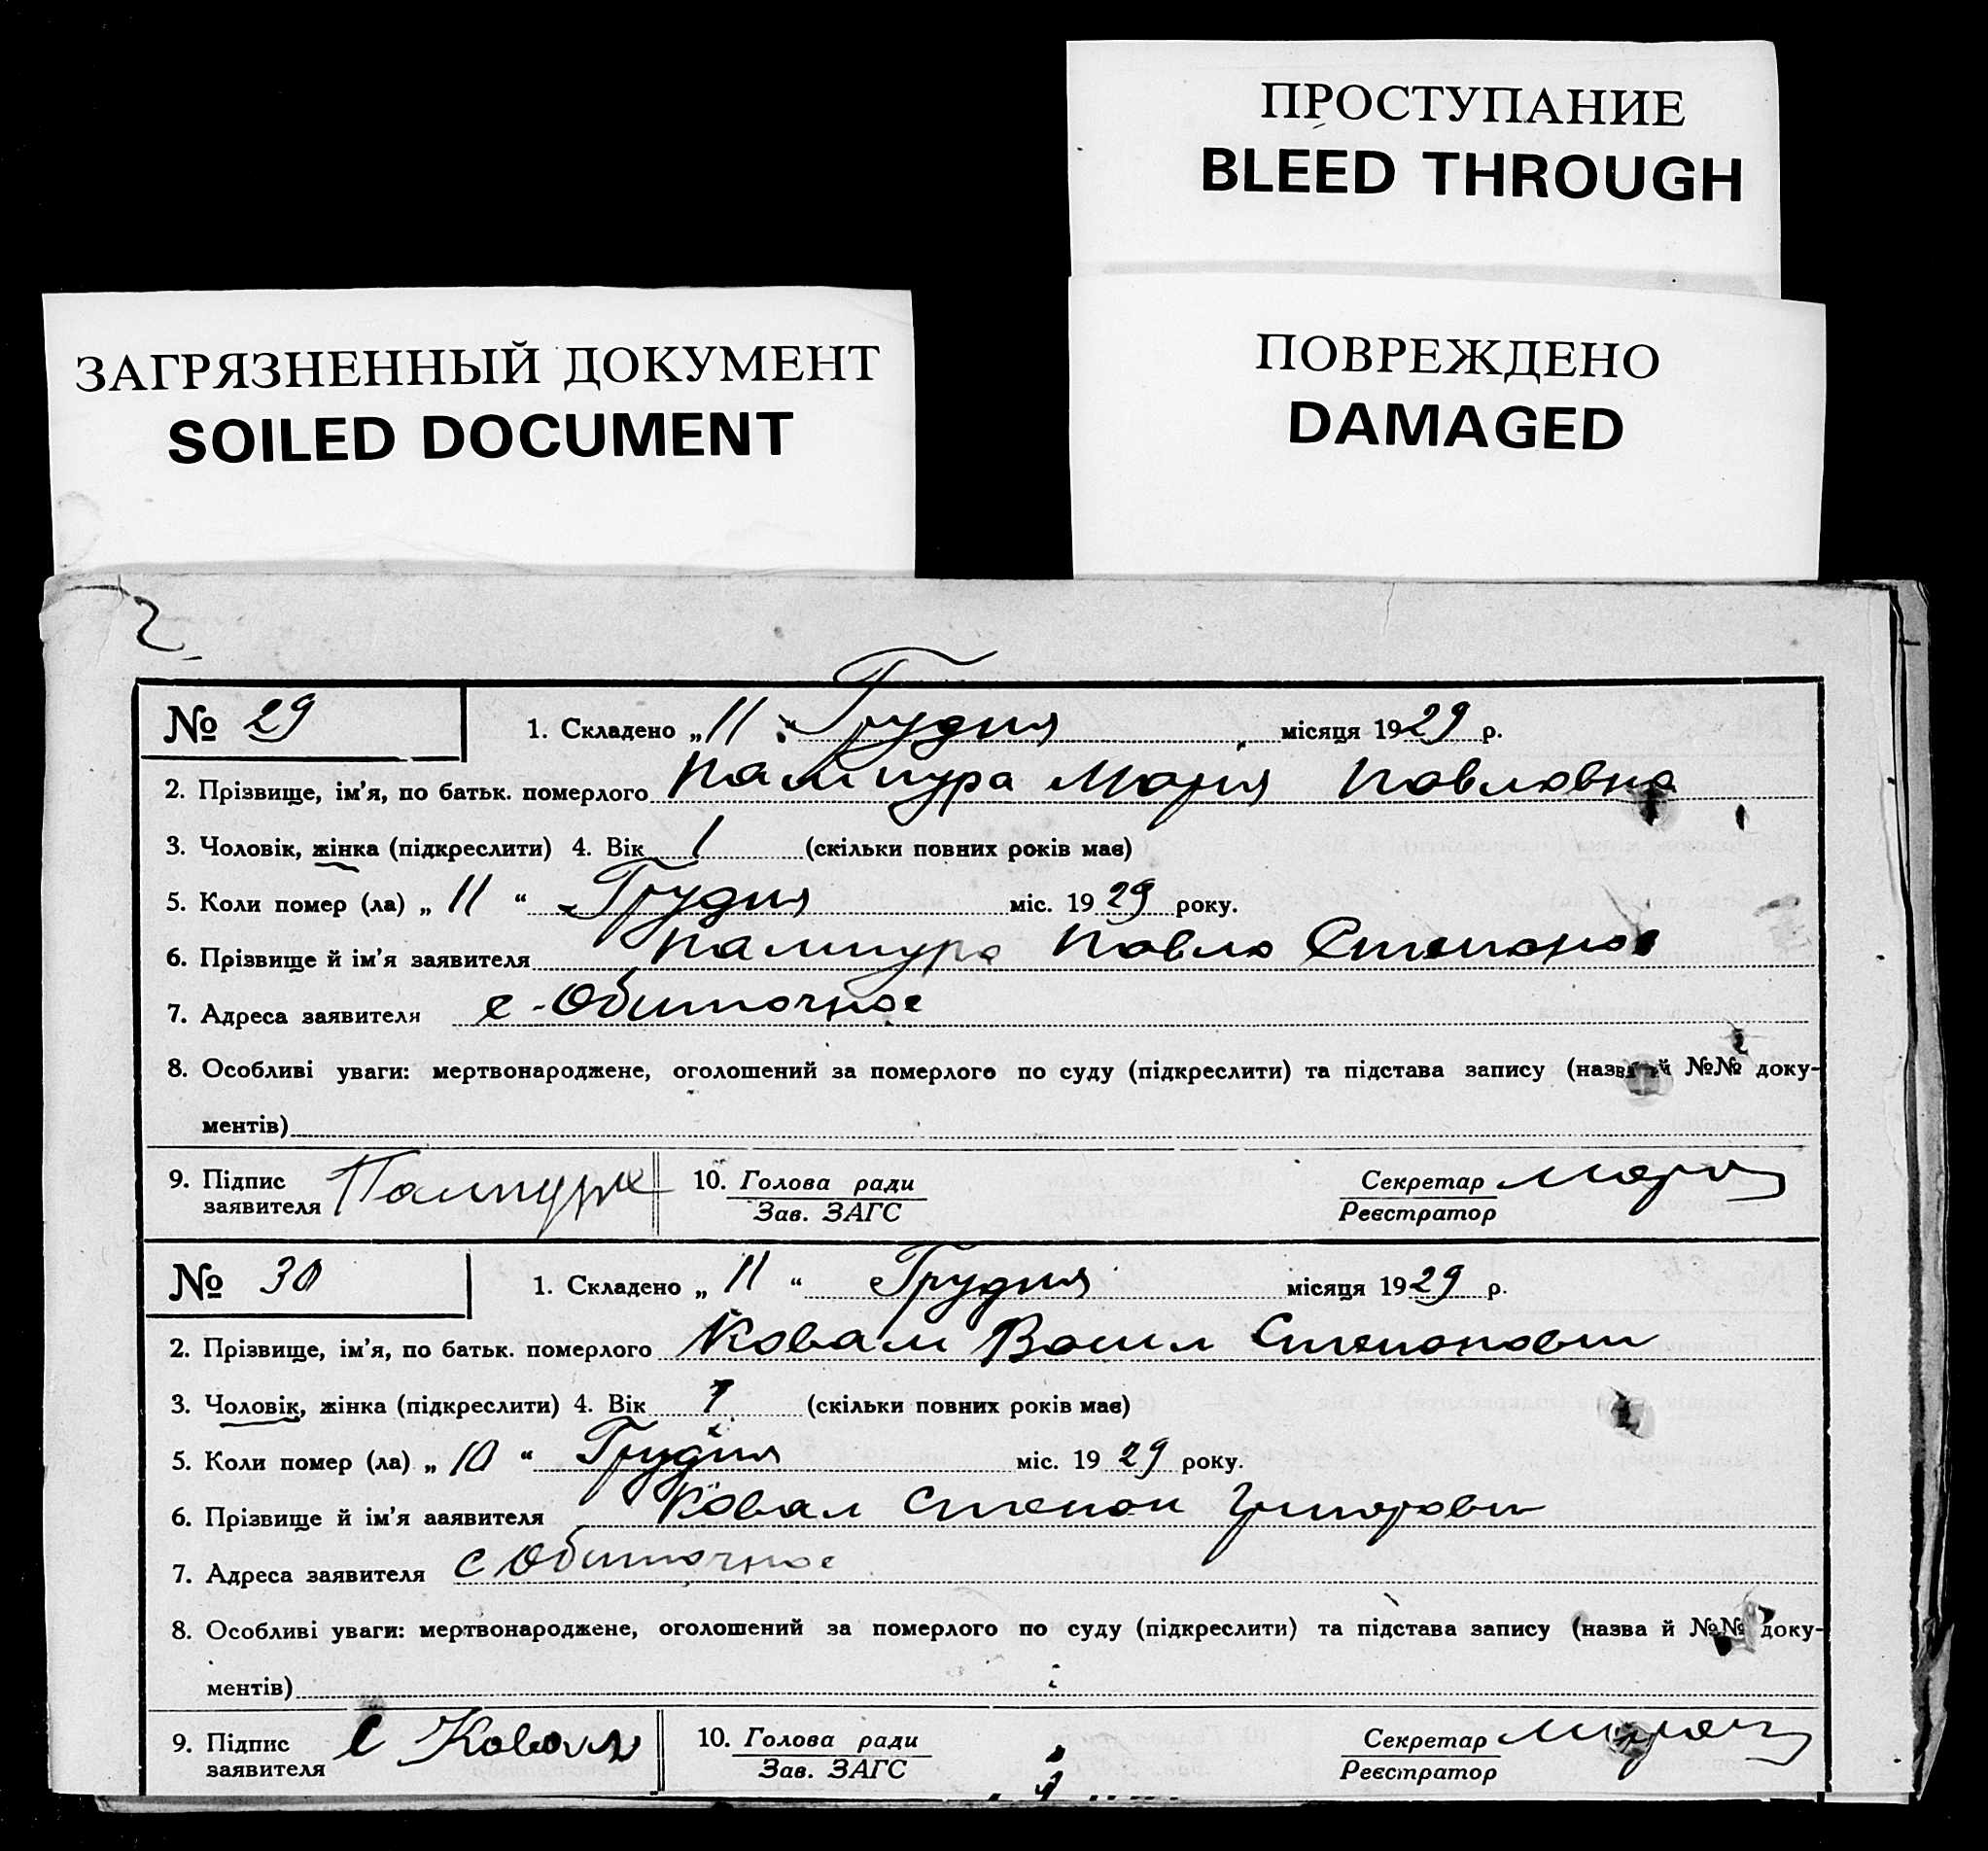 ПРОСТУПАНИЕ
BLEED THROUGH
ЗАГРЯЗНЕННЫЙ ДОКУМЕНТ
SOILED DOCUMENT
ПОВРЕЖДЕНО
DAMAGED
2
№ 29 1. Складено „11“ Грудня місяця 1929 р.
2. Прізвище, ім'я, по батьк. померлого Марія Павловна
3. Чоловік, жінка (підкреслити) 4. Вік 1 (скільки повних років має)
5. Коли помер (ла) „11“ Грудня міс. 1929 року.
6. Прізвище й ім'я заявителя Павло
7. Адреса заявителя с. Обиточное
8. Особливі уваги: мертвонароджене, оголошений за померлого по суду (підкреслити) та підстава запису (назва й №№ доку-
ментів)
9. Підпис заявителя 10. Голова ради Секретар
Зав. ЗАГС Реєстратор
№ 30 1. Складено „11“ Грудня місяця 1929 р.
2. Прізвище, ім'я, по батьк. померлого Коваль Васил Степанович
3. Чоловік, жінка (підкреслити) 4. Вік (скільки повних років має)
5. Коли помер (ла) „10“ Грудня міс. 1929 року.
6. Прізвище й ім'я заявителя Ковал Степан Григорович
7. Адреса заявителя с Обиточное
8. Особливі уваги: мертвонароджене, оголошений за померлого по суду (підкреслити) та підстава запису (назва й №№ доку-
ментів)
9. Підпис заявителя С Коваль 10. Голова ради Секретар
Зав. ЗАГС Реєстратор